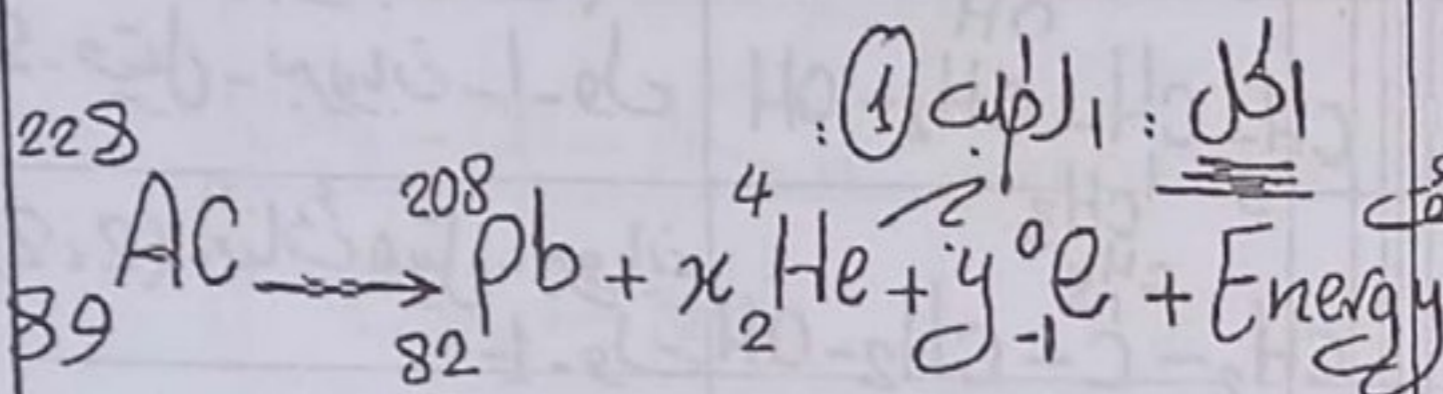 الحل : الطلب ① :
²²⁸₈₉AC → ²⁰⁸₈₂Pb + x ⁴₂He + y ⁰₋₁e + Energy